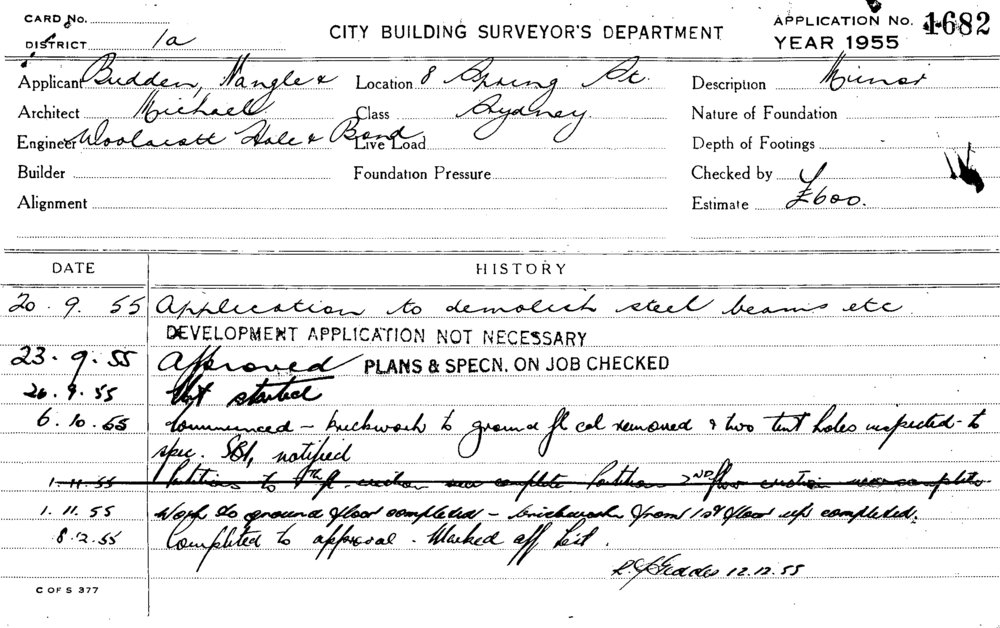 CARD No.
DISTRICT 1a
CITY BUILDING SURVEYOR'S DEPARTMENT
APPLICATION No. 1682
YEAR 1955
Applicant Budden, Nangle & Location 8 Spring St. Description Minor
Architect Michael Class Sydney. Nature of Foundation
Engineer Woolacott Hale & Bond Live Load Depth of Footings
Builder Foundation Pressure Checked by
Alignment Estimate £600.
DATE HISTORY
20. 9. 55 Application to demolish steel beams etc
DEVELOPMENT APPLICATION NOT NECESSARY
23. 9. 55 Approved PLANS & SPECN. ON JOB CHECKED
26. 9. 55 Not started
6. 10. 55 Commenced – brickwork to ground fl col removed & two test holes inspected to
spec. notified
1. 11. 55 Partitions to fl. erection near complete Partitions 2ND floor erection near complete
1. 11. 55 Work to ground floor completed – brickwork from 1st floor up completed.
8. 12. 55 Completed to approval. Marked off list.
Geddes 12.12.55
C OF S 377